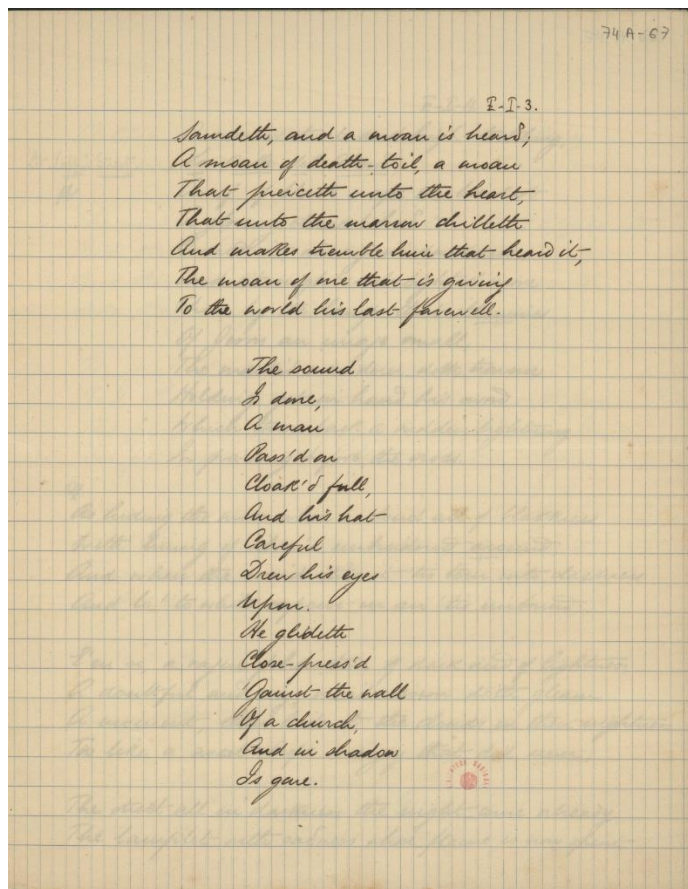 74A-67
I-I-3.
Soundeth, and a moan is heard;
A moan of death-toil, a moan
That pierceth unto the heart,
That unto the marrow chilleth
And makes tremble him that heard it,
The moan of one that is giving
To the world his last farewell.
The sound
Is done,
A man
Pass'd on
Cloak'd full,
And his hat
Careful
Drew his eyes
Upon.
He glideth
Close-press'd
'Gainst the wall
Of a church,
And in shadow
Is gone.